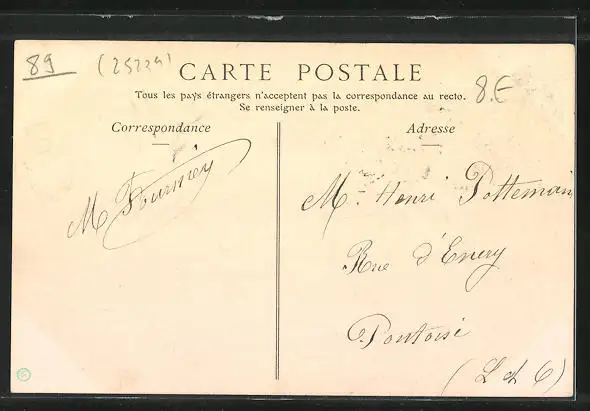 89 (25229)
CARTE POSTALE
Tous les pays étrangers n'acceptent pas la correspondance au recto.
Se renseigner à la poste.
8.€
Correspondance
M Fournier
Adresse
Mr Henri Pottemain
Rue d'Enery
Pontoise
(S et O)